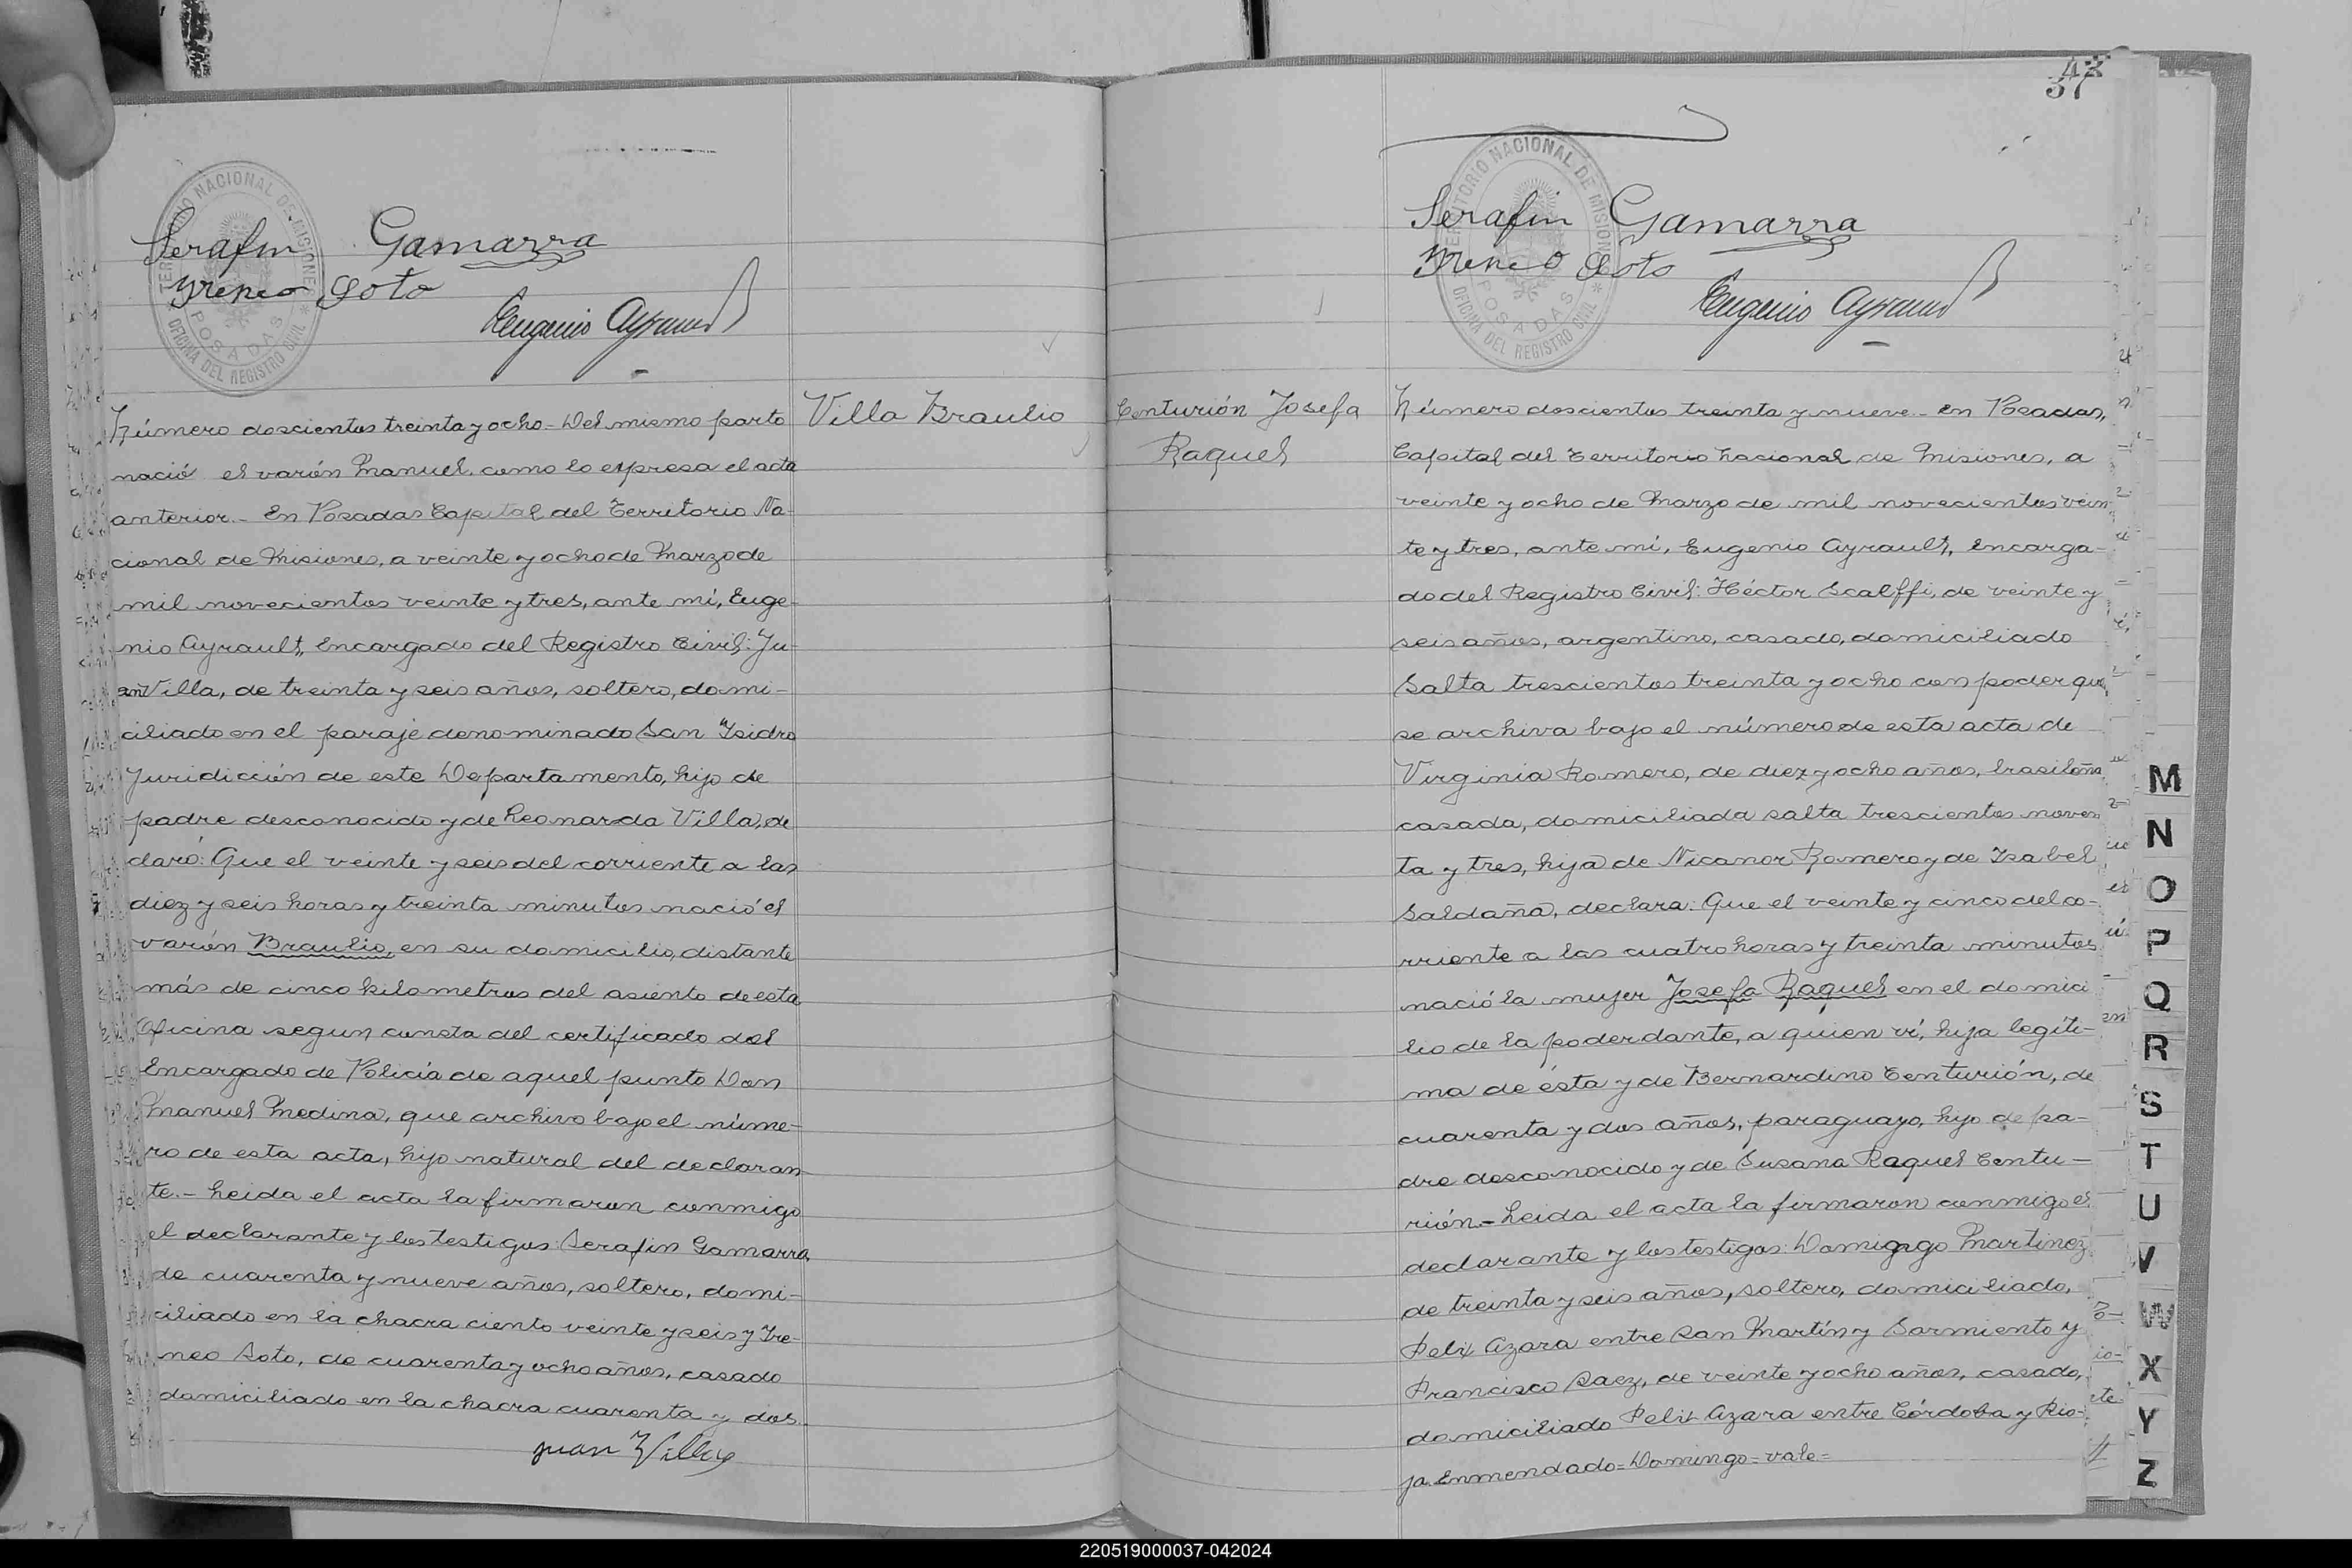 TERRITORIO NACIONAL DE MISIONES
OFICINA DEL REGISTRO CIVIL
POSADAS
Serafin Gamarra
Yreneo Soto
Eugenio Ayrault
Villa Braulio
Número doscientos treinta y ocho - Del mismo parto
nació el varón Manuel como lo expresa el acta
anterior. - En Posadas Capital del Territorio Na-
cional de Misiones, a veinte y ocho de Marzo de
mil novecientos veinte y tres, ante mí, Euge-
nio Ayrault, Encargado del Registro Civil: Ju-
an Villa, de treinta y seis años, soltero, domi-
ciliado en el paraje denominado San Ysidro
Juridicción de este Departamento, hijo de
padre desconocido y de Leonarda Villa, de
claró: Que el veinte y seis del corriente a las
diez y seis horas y treinta minutos nació el
varón Braulio, en su domicilio, distante
más de cinco kilometros del asiento de esta
Oficina segun consta del certificado del
Encargado de Policía de aquel punto Don
Manuel Medina, que archivo bajo el núme-
ro de esta acta, hijo natural del declaran-
te. - Leida el acta la firmaron conmigo
el declarante y los testigos: Serafin Gamarra,
de cuarenta y nueve años, soltero, domi-
ciliado en la chacra ciento veinte y seis y Yre-
neo Soto, de cuarenta y ocho años, casado
domiciliado en la chacra cuarenta y dos.
Juan Villa
37
TERRITORIO NACIONAL DE MISIONES
OFICINA DEL REGISTRO CIVIL
POSADAS
Serafin Gamarra
Yreneo Soto
Eugenio Ayrault
Centurión Josefa
Raquel
Número doscientos treinta y nueve - En Posadas,
Capital del Territorio Nacional de Misiones, a
veinte y ocho de Marzo de mil novecientos vein
te y tres, ante mí, Eugenio Ayrault, Encarga-
do del Registro Civil: Héctor Scalffi, de veinte y
seis años, argentino, casado, domiciliado
Salta trescientos treinta y ocho con poder que
se archiva bajo el número de esta acta de
Virginia Romero, de diez y ocho años, brasileña
casada, domiciliada salta trescientos noven
ta y tres, hija de Nicanor Romero y de Isabel
Saldaña, declara: Que el veinte y cinco del co-
rriente a las cuatro horas y treinta minutos
nació la mujer Josefa Raquel en el domici
lio de la poderdante, a quien ví, hija legíti-
ma de ésta y de Bernardino Centurión, de
cuarenta y dos años, paraguayo, hijo de pa-
dre desconocido y de Susana Raquel Centu-
rión. - Leida el acta la firmaron conmigo el
declarante y los testigos: Domingo Martinez
de treinta y seis años, soltero, domiciliado,
Felix Azara entre San Martín y Sarmiento y
Francisco Saez, de veinte y ocho años, casado,
domiciliado Felix Azara entre Córdoba y Rio-
ja. Enmendado = Domingo = vale =
M
N
O
P
Q
R
S
T
U
V
W
X
Y
Z
220519000037-042024